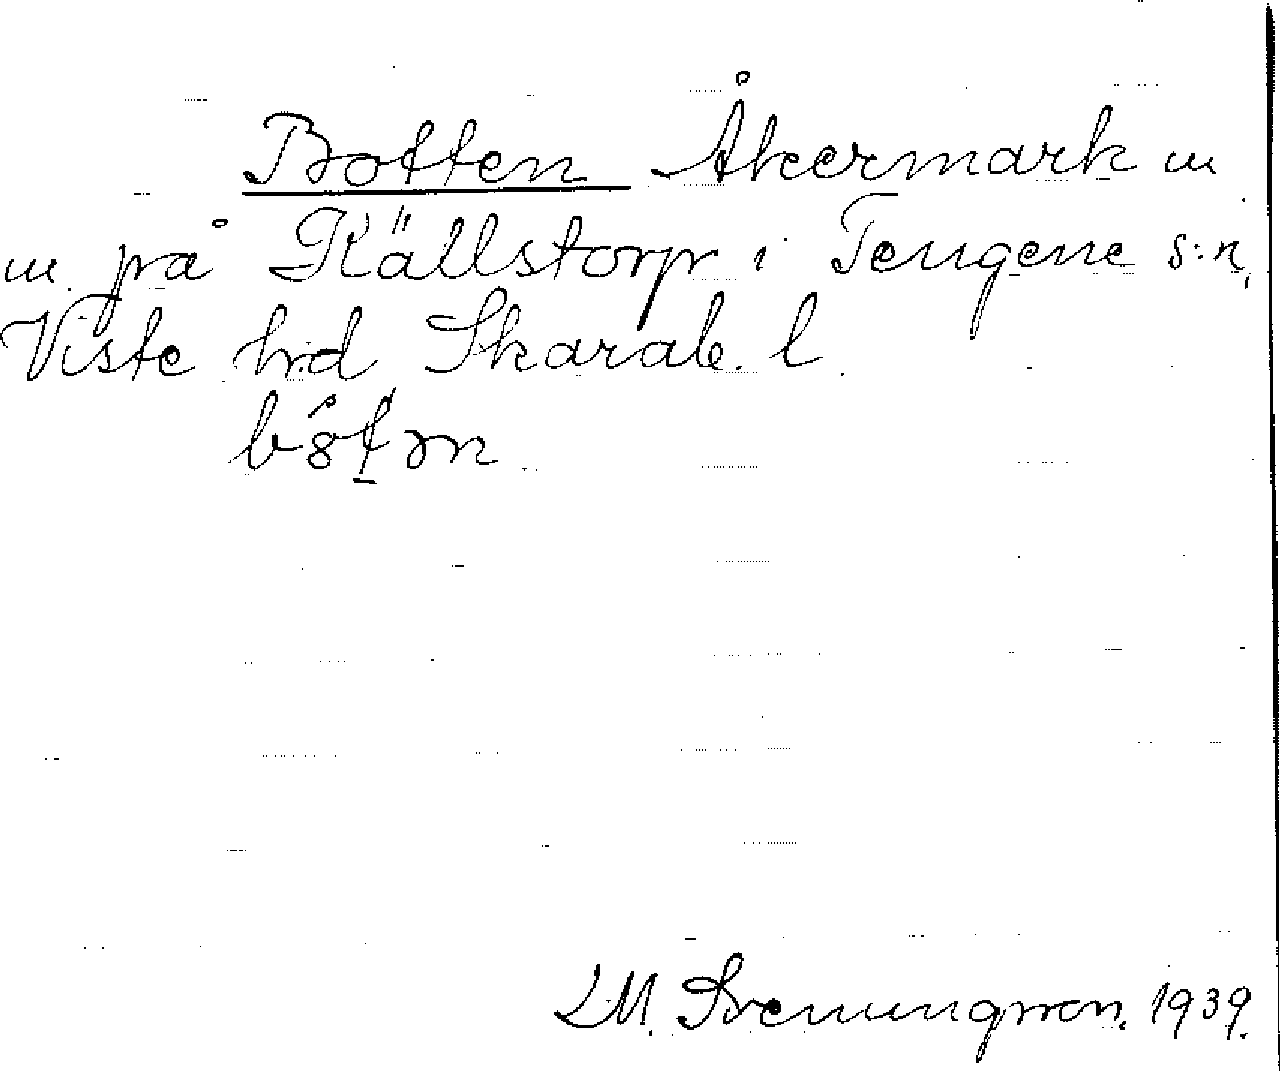 Botten Åkermark m
m. på Källstorp i Tengene s:n,
Viste hd Skarab. l.
LM. Svenungsson. 1939.